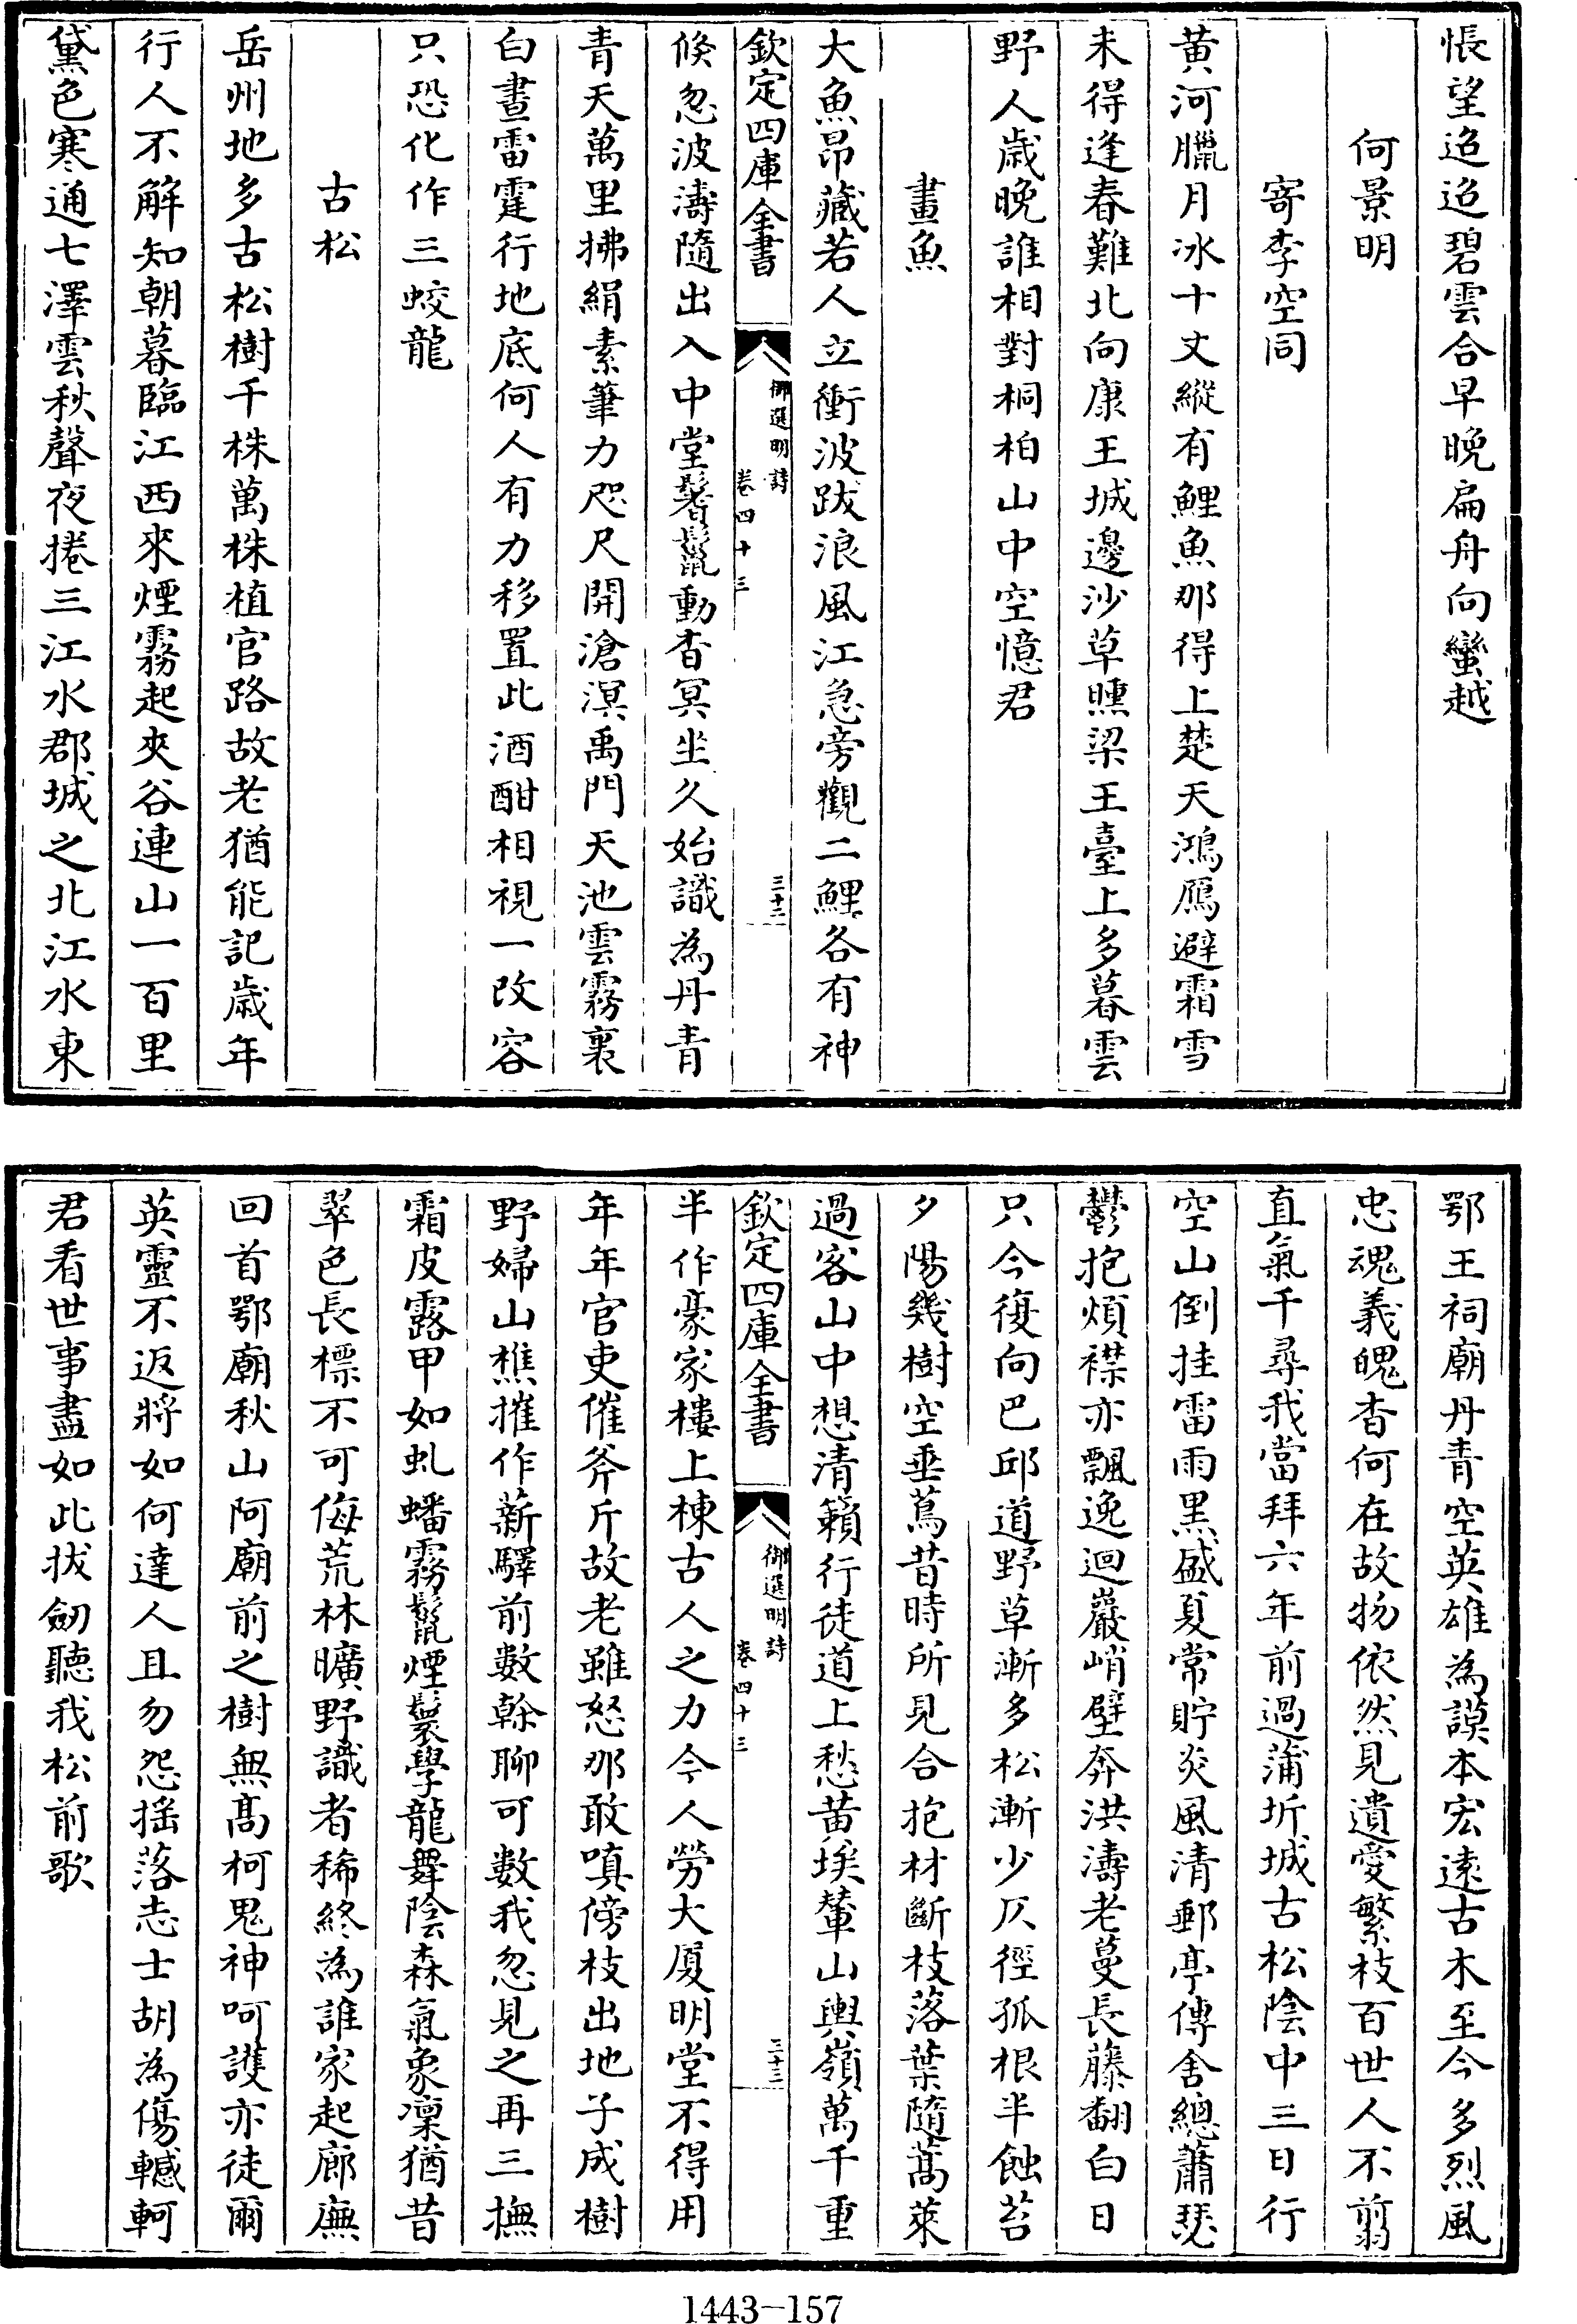 悵望迢迢碧雲合早晚扁舟向蠻越
何景明
寄李空同
黄河臘月冰十丈縱有鯉魚那得上楚天鴻鴈避霜雪
未得逢春難北向康王城邊沙草曛梁王臺上多暮雲
野人歲晚誰相對桐柏山中空憶君
畫魚
大魚昂藏若人立衝波跋浪風江急旁觀二鯉各有神
欽定四庫全書
御選明詩
卷四十三
三十二
倏忽波濤隨出入中堂鬐鬣動杳冥坐久始識為丹青
青天萬里拂絹素筆力咫尺開滄溟禹門天池雲霧裏
白晝雷霆行地底何人有力移置此酒酣相視一改容
只恐化作三蛟龍
古松
岳州地多古松樹千株萬株植官路故老猶能記歲年
行人不解知朝暮臨江西來煙霧起夾谷連山一百里
黛色寒通七澤雲秋聲夜捲三江水郡城之北江水東
鄂王祠廟丹青空英雄為謨本宏遠古木至今多烈風
忠魂義魄杳何在故物依然見遺愛繁枝百世人不翦
直氣千尋我當拜六年前過蒲圻城古松陰中三日行
空山倒挂雷雨黑盛夏常貯炎風清郵亭傳舍總蕭瑟
鬱抱煩襟亦飄逸迴巖峭壁奔洪濤老蔓長藤翻白日
只今復向巴邱道野草漸多松漸少仄徑孤根半蝕苔
夕陽幾樹空垂蔦昔時所見合抱材斷枝落葉隨蒿萊
過客山中想清籟行徒道上愁黄埃輦山輿嶺萬千重
欽定四庫全書
御選明詩
卷四十三
三十三
半作豪家樓上棟古人之力今人勞大厦明堂不得用
年年官吏催斧斤故老雖怒那敢嗔傍枝出地子成樹
野婦山樵摧作薪驛前數榦聊可數我忽見之再三撫
霜皮露甲如虬蟠霧鬣煙鬟學龍舞陰森氣象凜猶昔
翠色長標不可侮荒林曠野識者稀終為誰家起廊廡
回首鄂廟秋山阿廟前之樹無髙柯鬼神呵護亦徒爾
英靈不返將如何達人且勿怨揺落志士胡為傷轗軻
君看世事盡如此拔劒聽我松前歌
1443-157